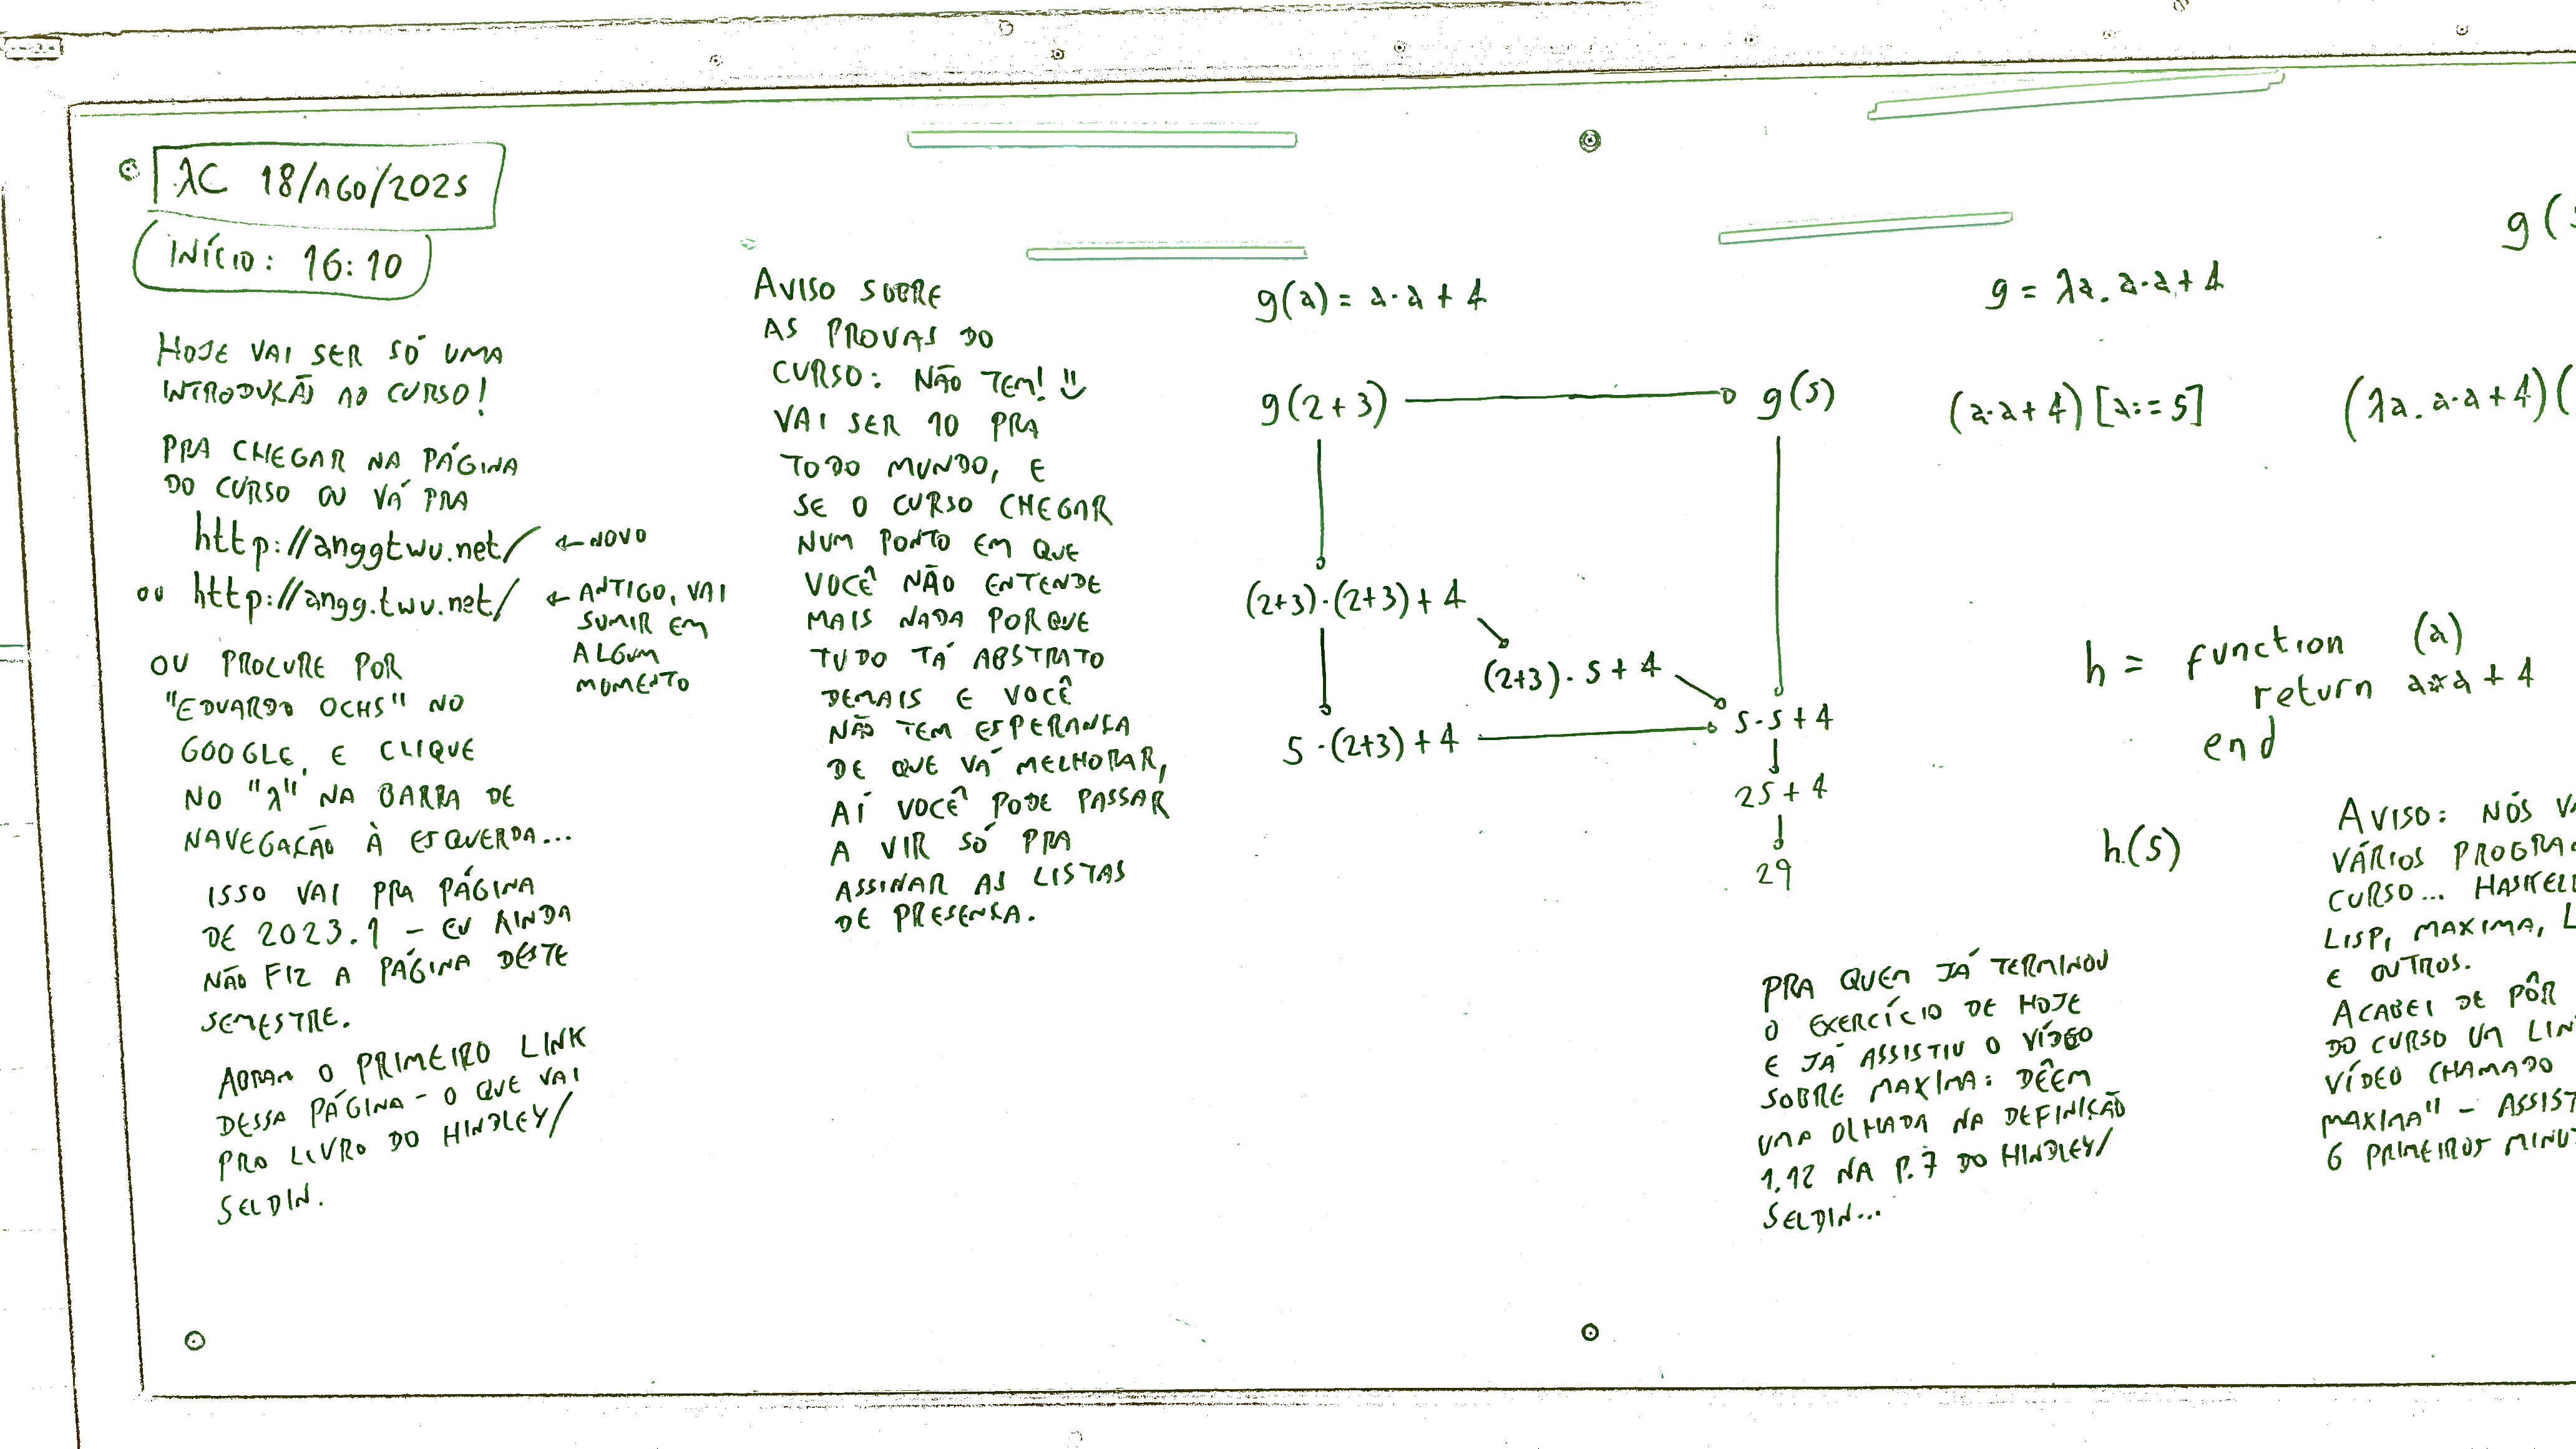 λC 18/AGO/2025
INÍCIO: 16:10
HOJE VAI SER SÓ UMA
INTRODUÇÃO AO CURSO!
PRA CHEGAR NA PÁGINA
DO CURSO OU VÁ PRA
http://anggtwu.net/ ← NOVO
OU http://angg.twu.net/ ← ANTIGO, VAI
SUMIR EM
ALGUM
MOMENTO
OU PROCURE POR
"EDUARDO OCHS" NO
GOOGLE, E CLIQUE
NO "λ" NA BARRA DE
NAVEGAÇÃO À ESQUERDA...
ISSO VAI PRA PÁGINA
DE 2023.1 - EU AINDA
NÃO FIZ A PÁGINA DESTE
SEMESTRE.
ABRAM O PRIMEIRO LINK
DESSA PÁGINA - O QUE VAI
PRO LIVRO DO HINDLEY/
SELDIN.
AVISO SOBRE
AS PROVAS DO
CURSO: NÃO TEM! =)
VAI SER 10 PRA
TODO MUNDO, E
SE O CURSO CHEGAR
NUM PONTO EM QUE
VOCÊ NÃO ENTENDE
MAIS NADA PORQUE
TUDO TÁ ABSTRATO
DEMAIS E VOCÊ
NÃO TEM ESPERANÇA
DE QUE VÁ MELHORAR,
AÍ VOCÊ PODE PASSAR
A VIR SÓ PRA
ASSINAR AS LISTAS
DE PRESENÇA.
g(a) = a·a + 4
g(2+3) g(5)
(2+3)·(2+3)+4
(2+3)·5+4
5·(2+3)+4 5·5+4
25+4
29
g = λa. a·a+4
g(
(a·a+4)[a:=5] (λa. a·a+4)(
h = function (a)
return a*a+4
end
h(5)
PRA QUEM JÁ TERMINOU
O EXERCÍCIO DE HOJE
E JÁ ASSISTIU O VÍDEO
SOBRE MAXIMA: DÊEM
UMA OLHADA NA DEFINIÇÃO
1.12 NA P.7 DO HINDLEY/
SELDIN...
AVISO: NÓS VA
VÁRIOS PROGRA
CURSO... HASKELL
LISP, MAXIMA, L
E OUTROS.
ACABEI DE PÔR
DO CURSO UM LIN
VÍDEO CHAMADO
MAXIMA" - ASSIST
6 PRIMEIROS MINUT